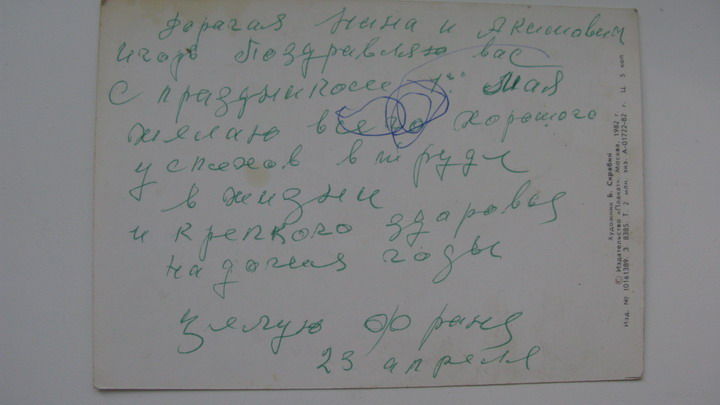 Дорагая Нина и Якимович
Игорь Поздравляю вас
с праздником 1ое Мая
желаю всего хорошого
успехов в труде
в жизни
и крепкого здаровья
на долгия годы
целую Франя
23 апреля
Художник Б. Скрябин
© Издательство «Плакат». Москва. 1982 г.
Изд. № 10161389. З. 8385. Т. 2 млн. экз. А-01722-82 г. Ц. 5 коп